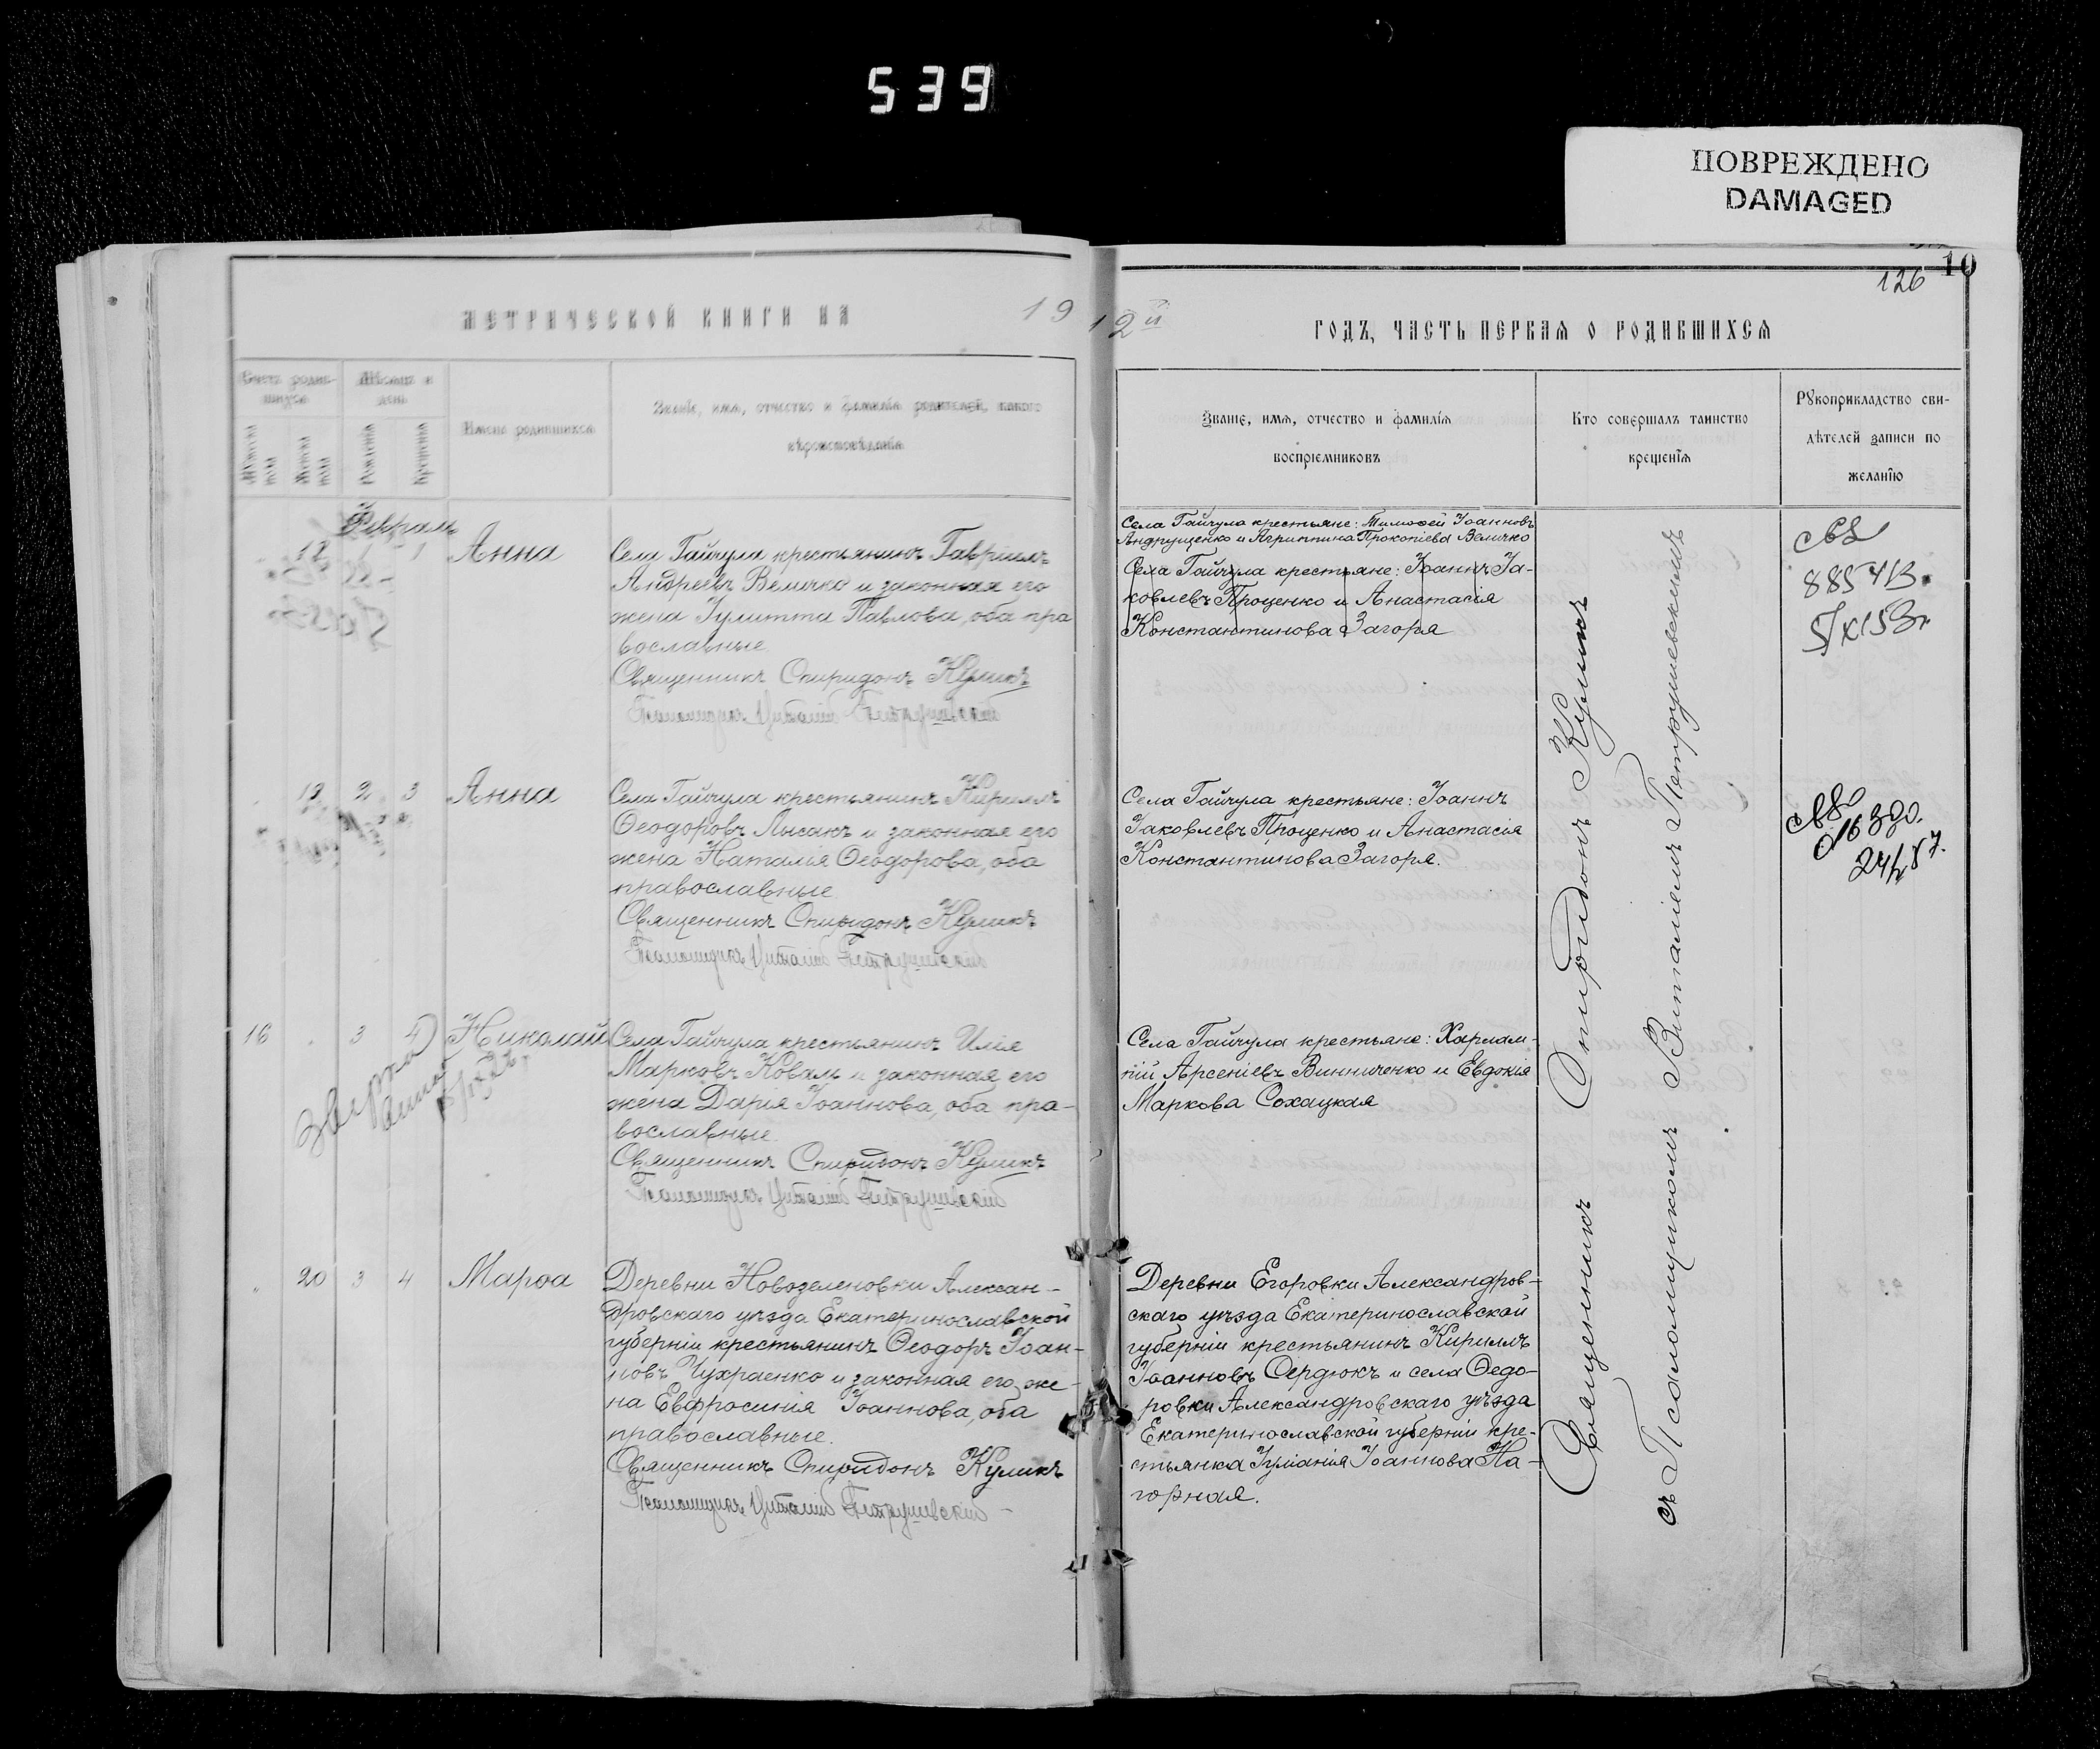 539
ПОВРЕЖДЕНО
DAMAGED
10
126
МЕТРИЧЕСКОЙ КНИГИ НА 19
12й ГОДЪ, ЧАСТЬ ПЕРВАЯ О РОДИВШИХСЯ
Счетъ родив-
шихся
Мѣсяцъ и
день
Мужеска
пола
Женска
пола
Рожденія
Крещенія
Имена родившихся
Званіе, имя, отчество и фамилія родителей, какого
вѣроисповѣданія
Званіе, имя, отчество и фамилія
воспріемниковъ
Кто совершалъ таинство
крещенія
Рукоприкладство сви-
дѣтелей записи по
желанію
Февраль
18 1 1 Анна
Села Гайчула крестьянинъ Гавріилъ
Андреевъ Величко и законная его
жена Іулитта Павлова, оба пра
вославные
Священникъ Спиридонъ Куликъ
Псаломщикъ Виталій Петрушевскій
Села Гайчула крестьяне: Тимофей Іоанновъ
Андрущенко и Агриппина Прокопіева Величко
Села Гайчула крестьяне: Іоаннъ Іа-
ковлевъ Проценко и Анастасія
Константинова Загоря
19 2 3 Анна
Села Гайчула крестьянинъ Кириллъ
Ѳеодоровъ Лысакъ и законная его
жена Наталія Ѳеодорова, оба
православные
Священникъ Спиридонъ Куликъ
Псаломщикъ Виталій Петрушевскій
Села Гайчула крестьяне: Іоаннъ
Іаковлевъ Проценко и Анастасія
Константинова Загоря.
16 3 4 Николай
Села Гайчула крестьянинъ Илія
Марковъ Коваль и законная его
жена Дарія Іоаннова, оба пра-
вославные.
Священникъ Спиридонъ Куликъ
Псаломщикъ Виталій Петрушевскій
Села Гайчула крестьяне: Харлам-
пій Арсеніевъ Винниченко и Евдокія
Маркова Сохацкая
20 3 4 Марѳа
Деревни Новозеленовки Алексан-
дровскаго уѣзда Екатеринославской
губерніи крестьянинъ Ѳеодоръ Іоан-
новъ Чухраенко и законная его же-
на Евфросинія Іоаннова, оба
православные.
Священникъ Спиридонъ Куликъ
Псаломщикъ Виталій Петрушевскій
Деревни Егоровки Александров-
скаго уѣзда Екатеринославской
губерніи крестьянинъ Кириллъ
Іоанновъ Сердюкъ и села Ѳедо-
ровки Александровскаго уѣзда
Екатеринославской губерніи кре-
стьянка Іуліанія Іоаннова На-
горная.
Священникъ Спиридонъ Куликъ
съ Псаломщикомъ Виталіемъ Петрушевскимъ